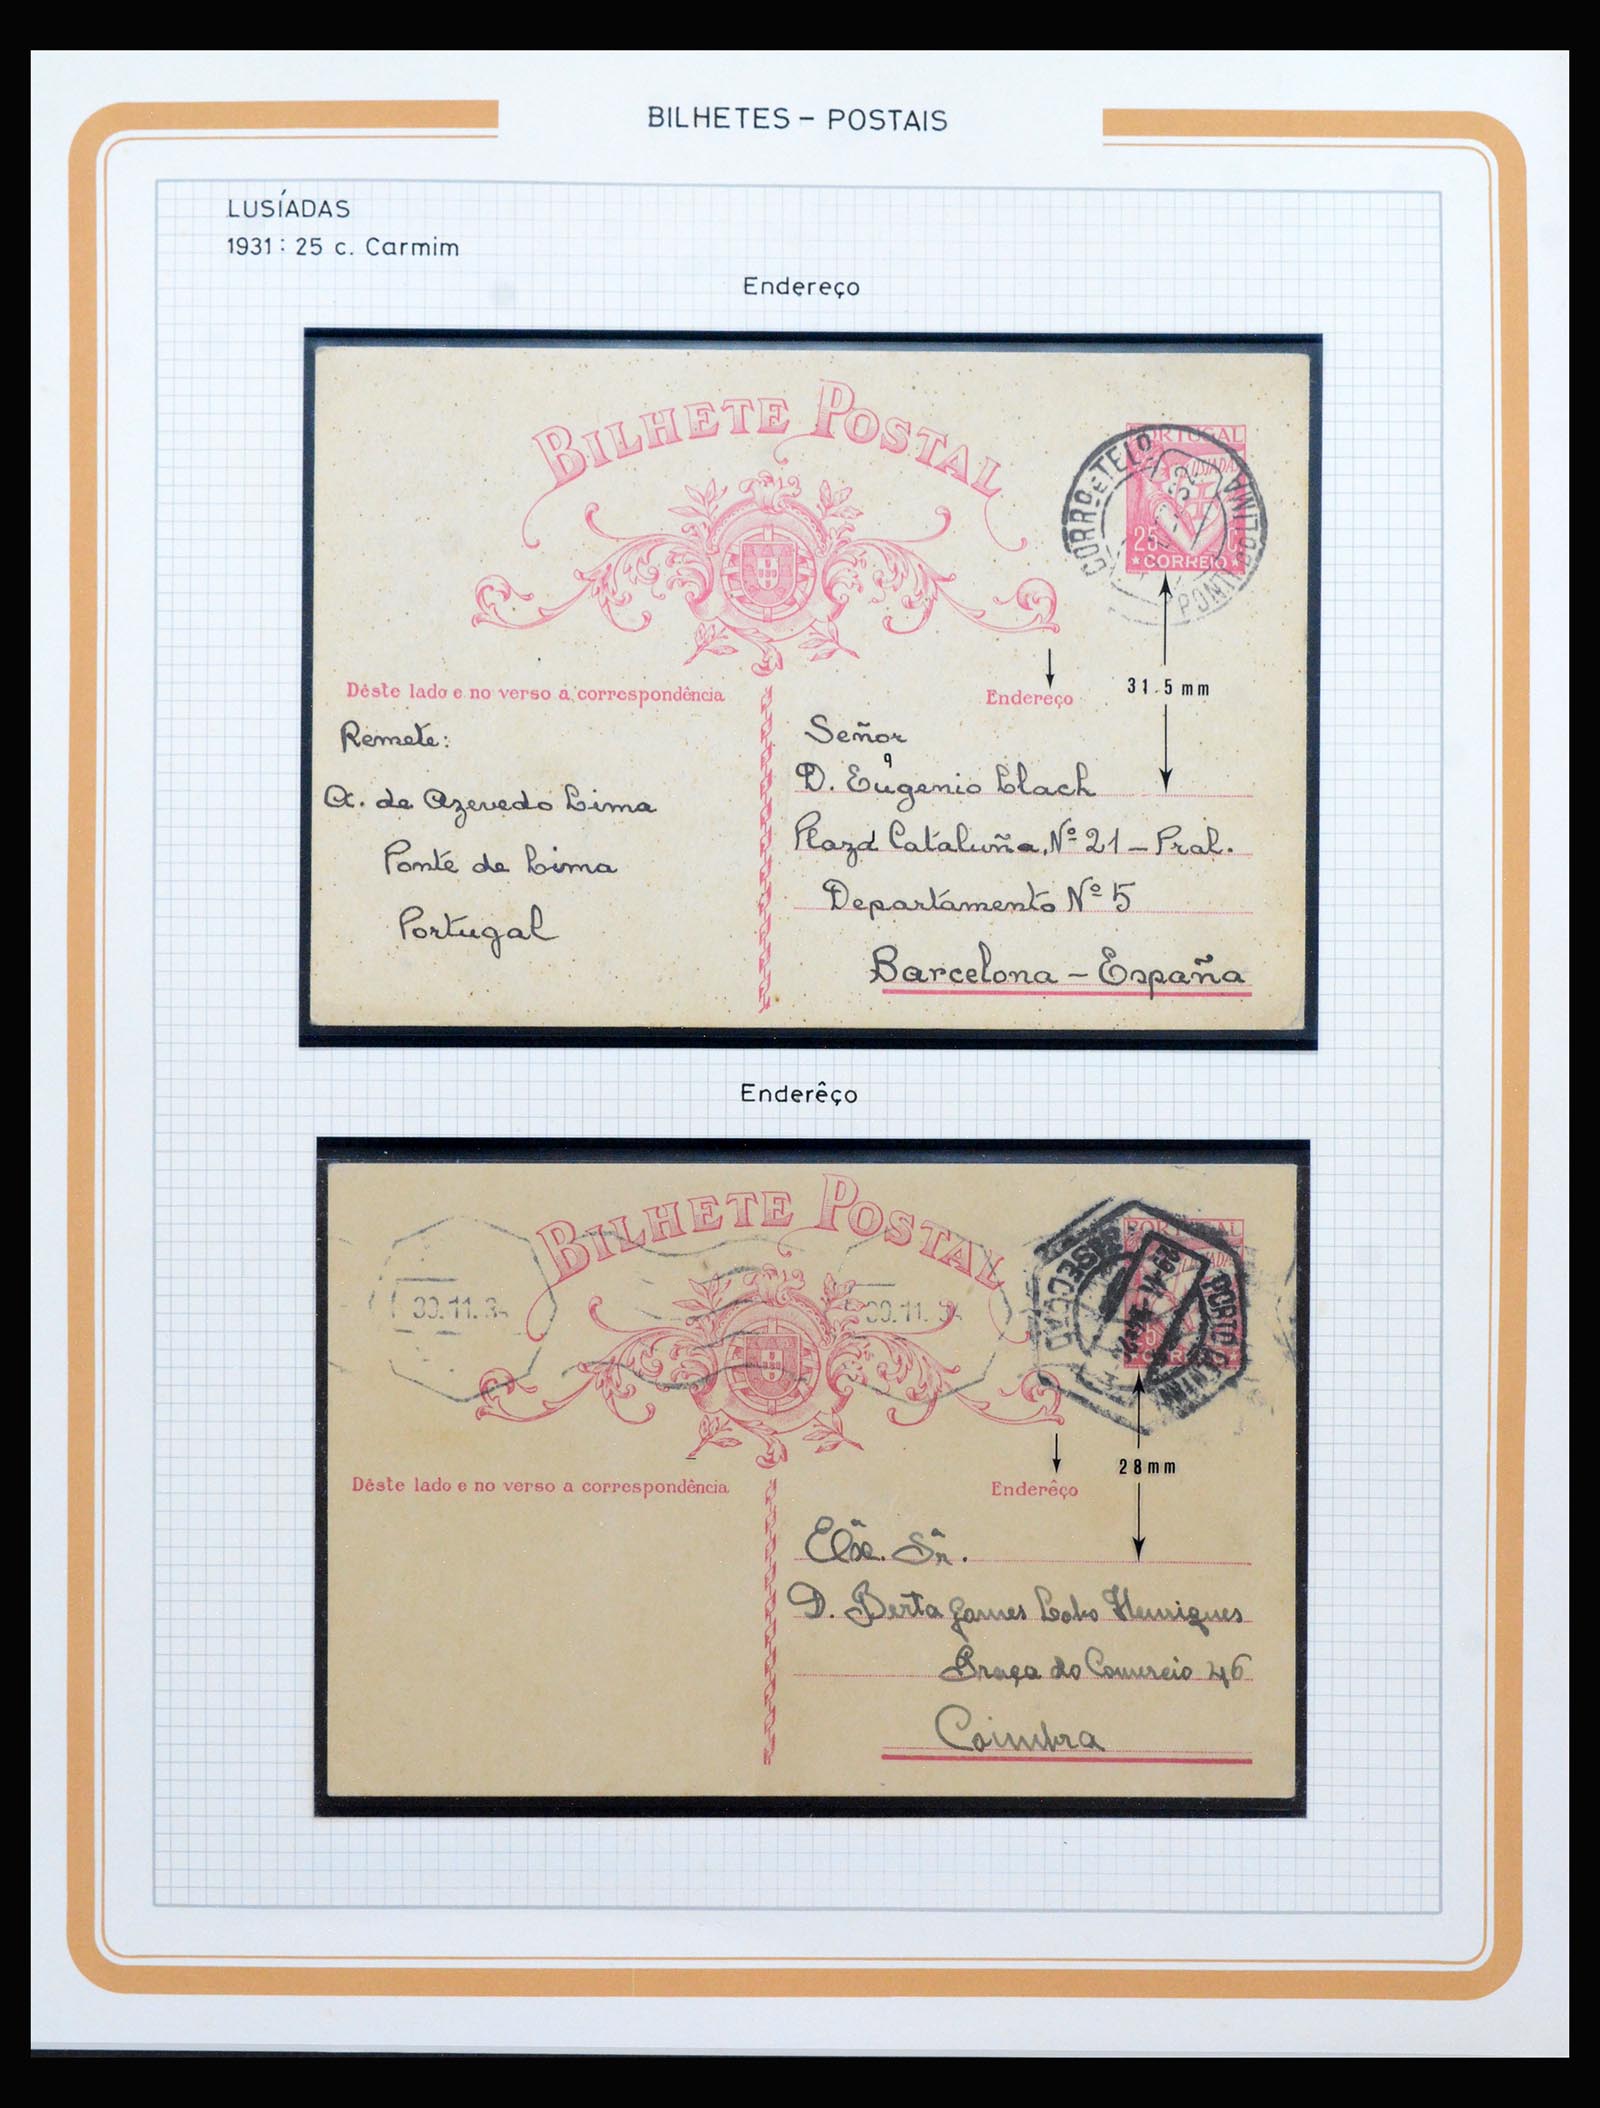 BILHETES – POSTAIS
LUSÍADAS
1931: 25 c. Carmim
Endereço
BILHETE POSTAL
PORTUGAL
LUSIADAS
25 C.
CORREIO
CORRO E TELO
32
31.5 mm
Dêste lado e no verso a correspondência
Endereço
Remete:
A. de Azevedo Lima
Ponte de Lima
Portugal
Señor
D. Eugenio Llach
Plaza Cataluña, Nº 21 – Pral.
Departamento Nº 5
Barcelona – España
Enderêço
BILHETE POSTAL
PORTUGAL
LUSIADAS
CORREIO
PORTO CENTRAL
SECÇÃO
30.11.34
30.11.34
28 mm
Dêste lado e no verso a correspondência
Enderêço
D. Berta Gomes Lobo Henriques
Praça do Comercio 46
Coimbra